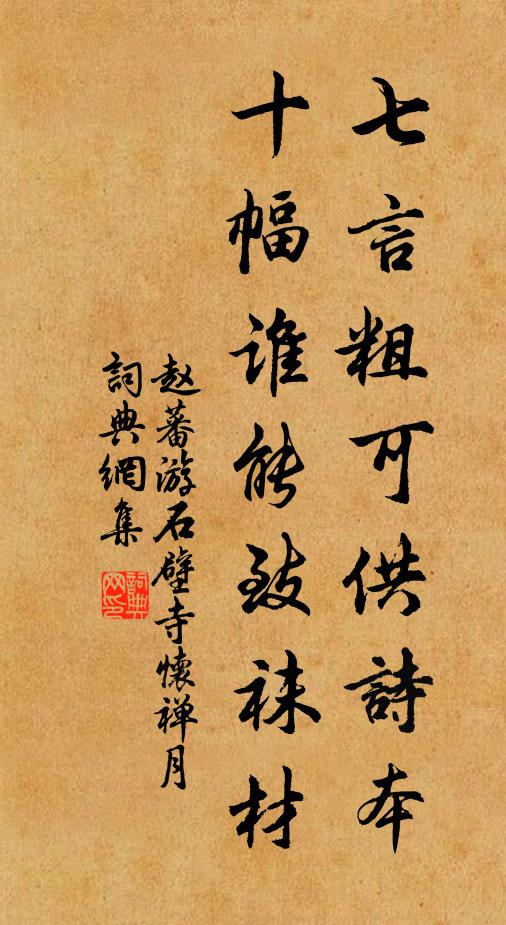 七言粗可供詩本
十幅誰能致袜材
赵蕃游石壁寺懷禅月
詞典網集
詞典网印